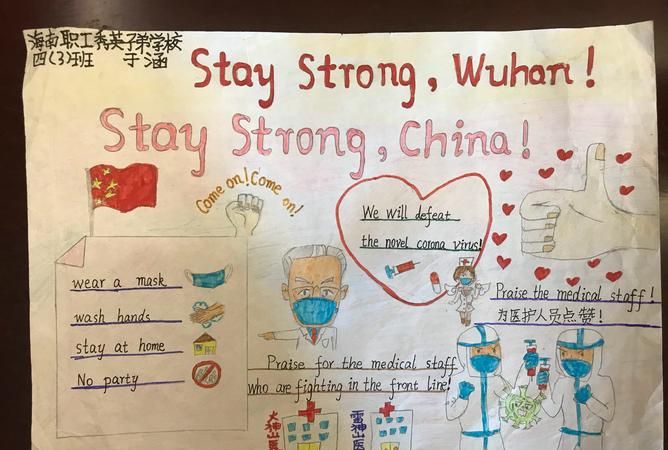 海南职工秀英子弟学校
四(3)班 于涵
Stay Strong, Wuhan!
Stay Strong, China!
Come on! Come on!
We will defeat
the novel corona virus!
wear a mask
wash hands
stay at home
No party
Praise the medical staff!
为医护人员点赞!
Praise for the medical staff
who are fighting in the front line!
火神山医
雷神山医